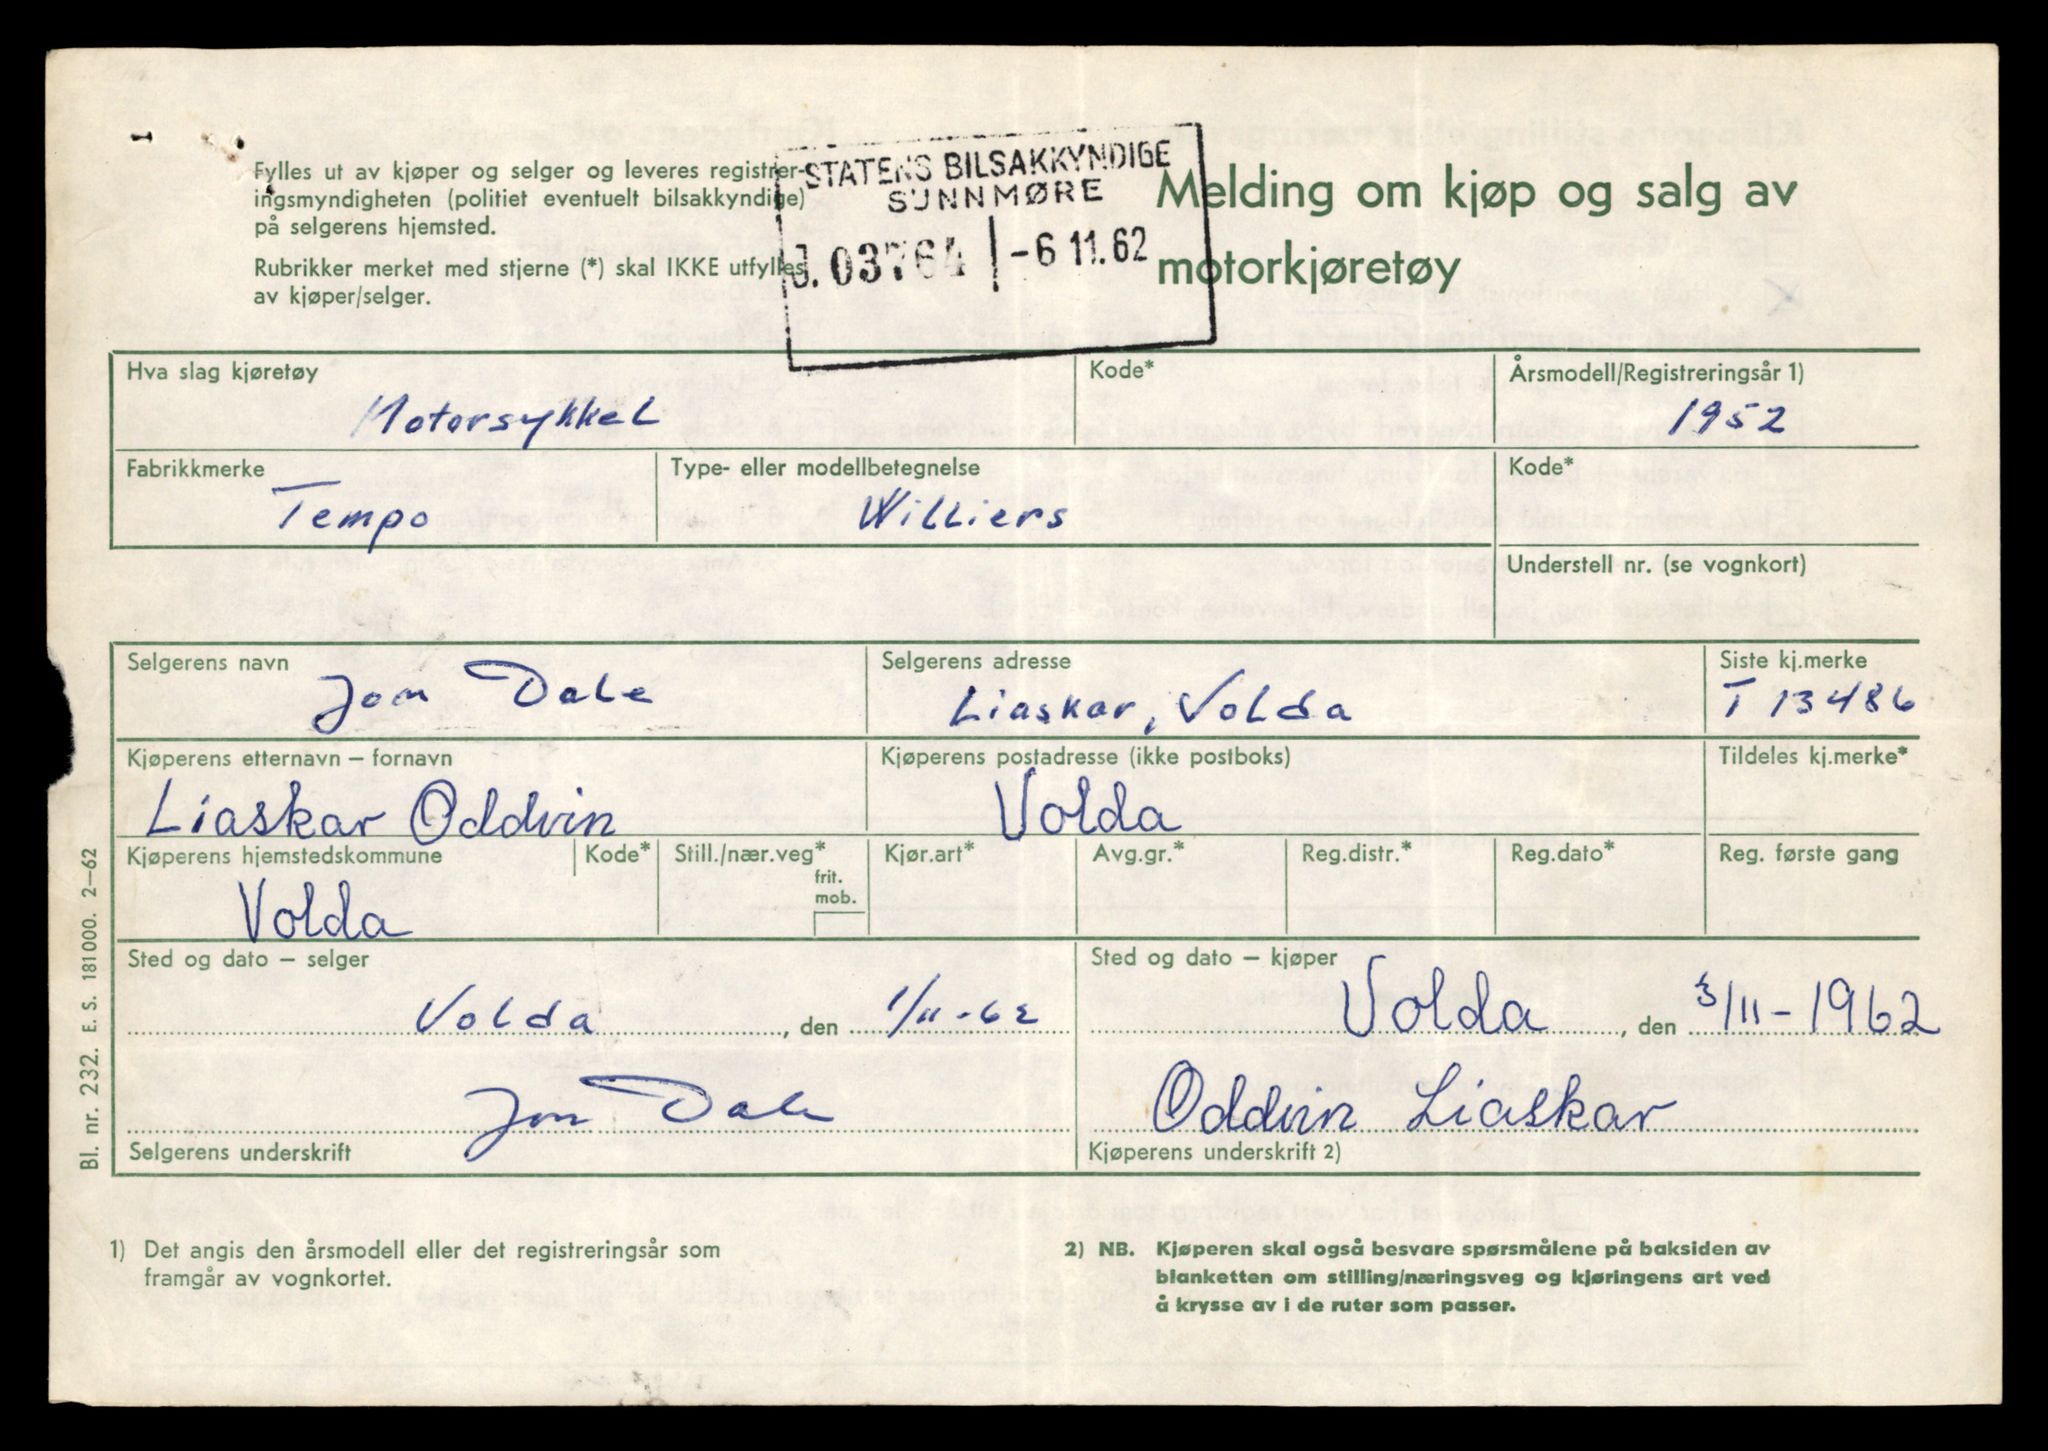 Fylles ut av kjøper og selger og leveres registrer-
ingsmyndigheten (politiet eventuelt bilsakkyndige)
på selgerens hjemsted.
Rubrikker merket med stjerne (*) skal IKKE utfylles
av kjøper/selger.
STATENS BILSAKKYNDIGE
SUNNMØRE
J. 03764 -6 11. 62
Melding om kjøp og salg av
motorkjøretøy
Hva slag kjøretøy
Motorsykkel
Kode*
Årsmodell/Registreringsår 1)
1952
Fabrikkmerke
Tempo
Type- eller modellbetegnelse
Williers
Kode*
Understell nr. (se vognkort)
Selgerens navn
Jon Dale
Selgerens adresse
Liaskar, Volda
Siste kj.merke
T 13486
Kjøperens etternavn – fornavn
Liaskar Oddvin
Kjøperens postadresse (ikke postboks)
Volda
Tildeles kj.merke*
Kjøperens hjemstedskommune
Volda
Kode*
Still./nær.veg*
frit.
mob.
Kjør.art*
Avg.gr.*
Reg.distr.*
Reg.dato*
Reg. første gang
Sted og dato – selger
Volda, den 1/11-62
Jon Dale
Selgerens underskrift
Sted og dato – kjøper
Volda, den 3/11-1962
Oddvin Liaskar
Kjøperens underskrift 2)
Bl. nr. 232. E. S. 181000. 2–62
1) Det angis den årsmodell eller det registreringsår som
framgår av vognkortet.
2) NB. Kjøperen skal også besvare spørsmålene på baksiden av
blanketten om stilling/næringsveg og kjøringens art ved
å krysse av i de ruter som passer.